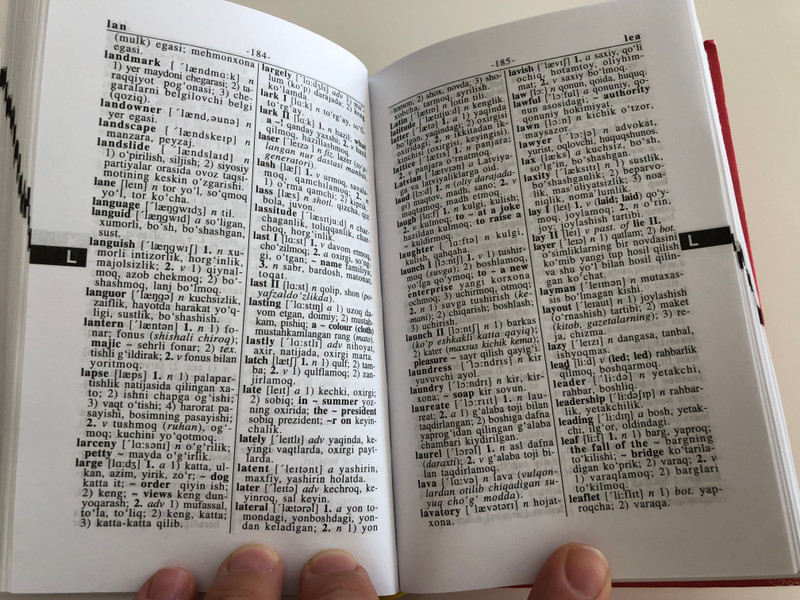 lan
-184-
(mulk) egasi; mehmonxona
egasi.
landmark [ˈlændmɑ:k] n
1) yer maydoni chegarasi; 2) ta-
raqqiyot pog'onasi; 3) che-
garalarni belgilovchi belgi
(qoziq).
landowner [ˈlændˌəunə] n
yer egasi.
landscape [ˈlændskeɪp] n
manzara, peyzaj.
landslide [ˈlændslaɪd] n
1) o'pirilish, siljish; 2) siyosiy
partiyalar orasida ovoz taqsi-
motining keskin o'zgarishi.
lane [leɪn] n tor yo'l, so'qmoq
yo'l, tor ko'cha.
language [ˈlæŋgwɪdʒ] n til.
languid [ˈlæŋgwɪd] a so'ligan,
xumorli, bo'sh, bo'shashgan,
sust.
languish [ˈlæŋgwɪʃ] 1. n xu-
morli intizorlik, horg'inlik,
majolsizlik; 2. v 1) qiynal-
moq, azob chekmoq; 2) bo'-
shashmoq, lanj bo'lmoq.
languor [ˈlæŋgə] n kuchsizlik,
zaiflik, hayotda harakat yo'q-
ligi, sustlik, bo'shashish.
lantern [ˈlæntən] n 1) fo-
nar; fonus (shishali chiroq);
majic ~ sehrli fonar; 2) tex.
tishli g'ildirak; 2. v fonus bilan
yoritmoq.
lapse [læps] 1. n 1) palapar-
tishlik natijasida qilingan xa-
to; 2) ishni chapga og'ishi;
3) vaqt o'tishi; 4) harorat pa-
sayishi, bosimning pasayishi;
2. v tushmoq (ruhan), og'-
moq; kuchini yo'qotmoq.
larceny [ˈlɑ:sənɪ] n o'g'rilik;
petty ~ mayda o'g'irlik.
large [lɑ:dʒ] 1. a 1) katta, ul-
kan, azim, yirik, zo'r; ~ dog
katta it; ~ order qiyin ish;
2) keng; ~ views keng dun-
yoqarash; 2. adv 1) mufassal,
to'la, to'liq; 2) keng, katta;
3) katta-katta qilib.
largely [ˈlɑ:dʒlɪ] adv
lum (ko'p) darajada; 2) keng
ko'lamda.
lark I [lɑ:k] n to'rg'ay, so'fi
to'rg'ay.
lark II [lɑ:k] 1. n hazil, what
a ~! qanday yaxshi; 2. v hazil
qilmoq, hazillashmoq.
laser [ˈleɪzə] n fiz. lazer
langan nur dastasi manbai,
generatori).
lash [læʃ] 1. v urmoq, savala-
moq, qamchilamoq; 2. n
1) o'rma qamchi; 2) kiprik.
lass [læs] n shotl. qizcha, qiz
bola, juvon.
lassitude [ˈlæsɪtju:d] n char-
chaganlik, toliqqanlik, char-
choq, horg'inlik.
last I [lɑ:st] 1. v davom etmoq,
cho'zilmoq; 2. a oxirgi, so'ng-
gi, o'tgan; ~ name familiya;
3. n sabr, bardosh, matonat,
toqat.
last II n qolip, shon (po-
yafzaldo'zlikda).
lasting [ˈlɑ:stɪŋ] a 1) uzoq da-
vom etgan, doimiy; 2) mustah-
kam, pishiq; a ~ colour (cloth)
mustahkamlangan rang (mato).
lastly [ˈlɑ:stlɪ] adv nihoyat,
axir, natijada, oxirgi marta.
latch [lætʃ] 1. n 1) qulf; 2) tam-
ba; 2. v 1) qulflamoq; 2) zan-
jirlamoq.
late [leɪt] a 1) kechki, oxirgi;
2) sobiq; in ~ summer yoz-
ning oxirida; the ~ president
sobiq prezident; ~r on keyin-
chalik.
lately [ˈleɪtlɪ] adv yaqinda, ke-
yingi vaqtlarda, oxirgi payt-
larda.
latent [ˈleɪtənt] a yashirin,
maxfiy, yashirin holatda.
later [ˈleɪtə] adv kechroq, ke-
yinroq, sal keyin.
lateral [ˈlætərəl] 1. a yon to-
mondagi, yonboshdagi, yon-
dan keladigan; 2. n 1) yon
L
-185-
lea
tomon; 2) shox, novda; 3) sho-
xobcha, tarmoq, ayrilish.
n lotin tili.
n kenglik.
a 1) yaqindagi,
2) ikkitadan ik-
kinchisi (oxirgisi, keyingisi).
n panjara;
v panjara o'rnatmoq.
Latvian a Latviya-
ga va latviyaliklarga oid.
laud 1. n (oliy darajada-
gi) maqtov, madh, sano; 2. v
maqtamoq, madh etmoq.
laugh 1. n kulgi, kulish;
2. v kulmoq; to ~ at a joke
hazildan kulmoq; to raise a ~
kuldirmoq.
laughter n kulgi,
kulish, qahqaha.
launch I 1. n 1) tushir-
moq (suvga); 2) boshlamoq,
yo'lga qo'ymoq; to ~ a new
enterprise yangi korxona
ochmoq; 3) uchirmoq, otmoq;
2. n 1) suvga tushirish (ke-
mani); 2) chiqarish; boshlash;
3) uchirish.
launch II n 1) barkas
(ko'p eshkakli katta qayiq);
2) kater (maxsus kichik kema);
pleasure ~ sayr qilish qayig'i.
laundress [ˈlɔ:ndrɪs] n kir
yuvuvchi ayol.
laundry [ˈlɔ:ndrɪ] n kir, kirxo-
na; ~ soap kir sovun.
laureate [ˈlɔ:rɪɪt] 1. n lau-
reat; 2. a 1) g'alaba toji bilan
taqdirlangan; 2) boshiga dafna
yaprog'idan qilingan g'alaba
chambari kiydirilgan.
laurel [ˈlɔrəl] 1. n asl dafna
(daraxti); 2. v g'alaba toji bi-
lan taqdirlamoq.
lava [ˈlɑ:və] n lava (vulqon-
lardan otilib chiqadigan su-
yuq cho'g' modda).
lavatory [ˈlævətərɪ] n hojat-
xona.
lavish [ˈlævɪʃ] 1. a saxiy, qo'li
ochiq, hotamtoy, oliyhim-
mat; 2. v saxiy bo'lmoq.
law n qonun, qoida, huquq.
lawful a qonuniy, qo-
nun asosidagi; ~ authority
qonuniy hokimiyat.
lawn [lɔ:n] n kichik o'tzor,
maysazor.
lawyer [ˈlɔ:jə] n advokat,
yurist, oqlovchi, huquqshunos.
lax [læks] a kuchsiz, bo'sh,
so'lib, bo'shashgan.
laxity [ˈlæksɪtɪ] n 1) sustlik,
bo'shashganlik; 2) beparvo-
lik, mas'uliyatsizlik; 3) noa-
niqlik, noma'lumlik.
lay I [leɪ] 1. v (laid; laid) qo'y-
moq, joylamoq; 2. n o'rin,
joyi, joylashish tartibi.
lay II [leɪ] v past. of lie II.
layer [ˈleɪə] n qatlam; 2) bot.
o'simliklarning bir novdasini
ko'mib yangi tup hosil qilish
va shu yo'l bilan hosil qilin-
gan ko'chat.
layman [ˈleɪmən] n mutaxas-
sis bo'lmagan kishi.
layout [ˈleɪaut] n 1) joylashish
(o'tkazish) tartibi; 2) maket
(kitob, gazetalarning); 3) re-
ja, chizma.
lazy [ˈleɪzɪ] n dangasa, tanbal,
ishyoqmas.
lead [li:d] v (led; led) rahbarlik
qilmoq, boshqarmoq.
leader [ˈli:də] n yetakchi,
rahbar, boshliq.
leadership [ˈli:dəʃɪp] n rahbar-
lik, yetakchilik.
leading [ˈli:dɪŋ] a bosh, yetak-
chi, ilg'or, oldindagi.
leaf [li:f] 1. n 1) barg, yaproq;
the fall of the ~ bargning
to'kilishi; ~ bridge ko'tarila-
digan ko'prik; 2) varaq; 2. v
1) varaqlamoq; 2) barglari
to'kilmoq.
leaflet [ˈli:flɪt] n 1) bot. yap-
roqcha; 2) varaqa.
L